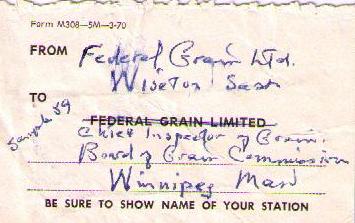 Form M308—5M—3-70
FROM Federal Grain Ltd.
Wiseton Sask
TO
Sample 59
FEDERAL GRAIN LIMITED
Chief Inspector of Grain.
Board of Grain Commission
Winnipeg Man
BE SURE TO SHOW NAME OF YOUR STATION